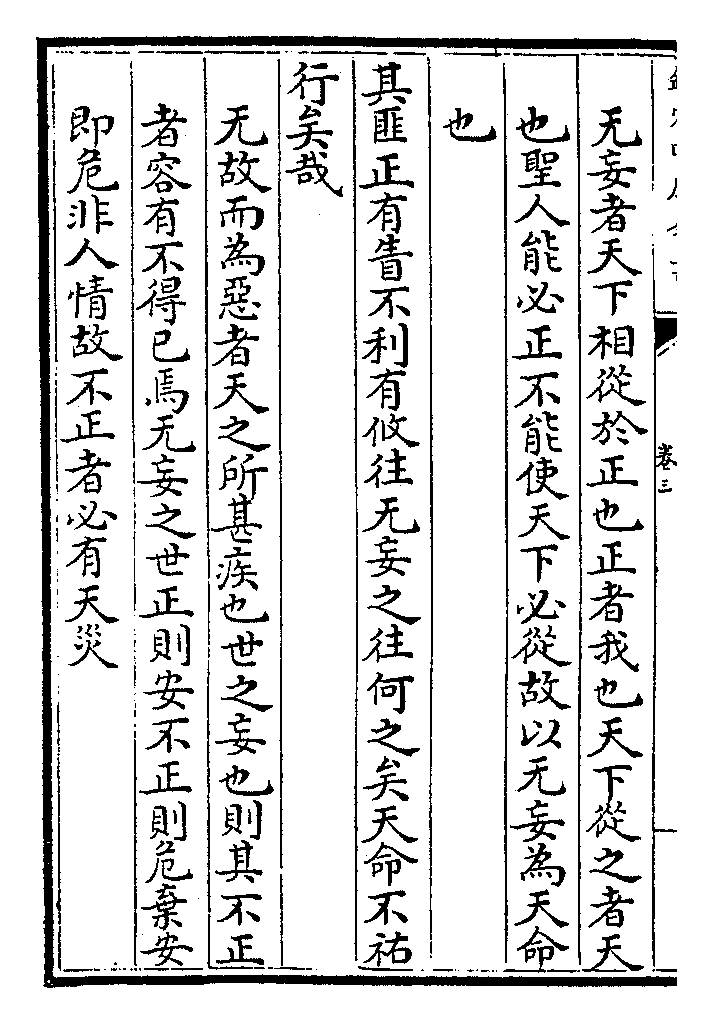 卷三
无妄者天下相從於正也正者我也天下從之者天
也聖人能必正不能使天下必從故以无妄為天命
也
其匪正有眚不利有攸往无妄之往何之矣天命不祐
行矣哉
无故而為惡者天之所甚疾也世之妄也則其不正
者容有不得已焉无妄之世正則安不正則危棄安
即危非人情故不正者必有天災